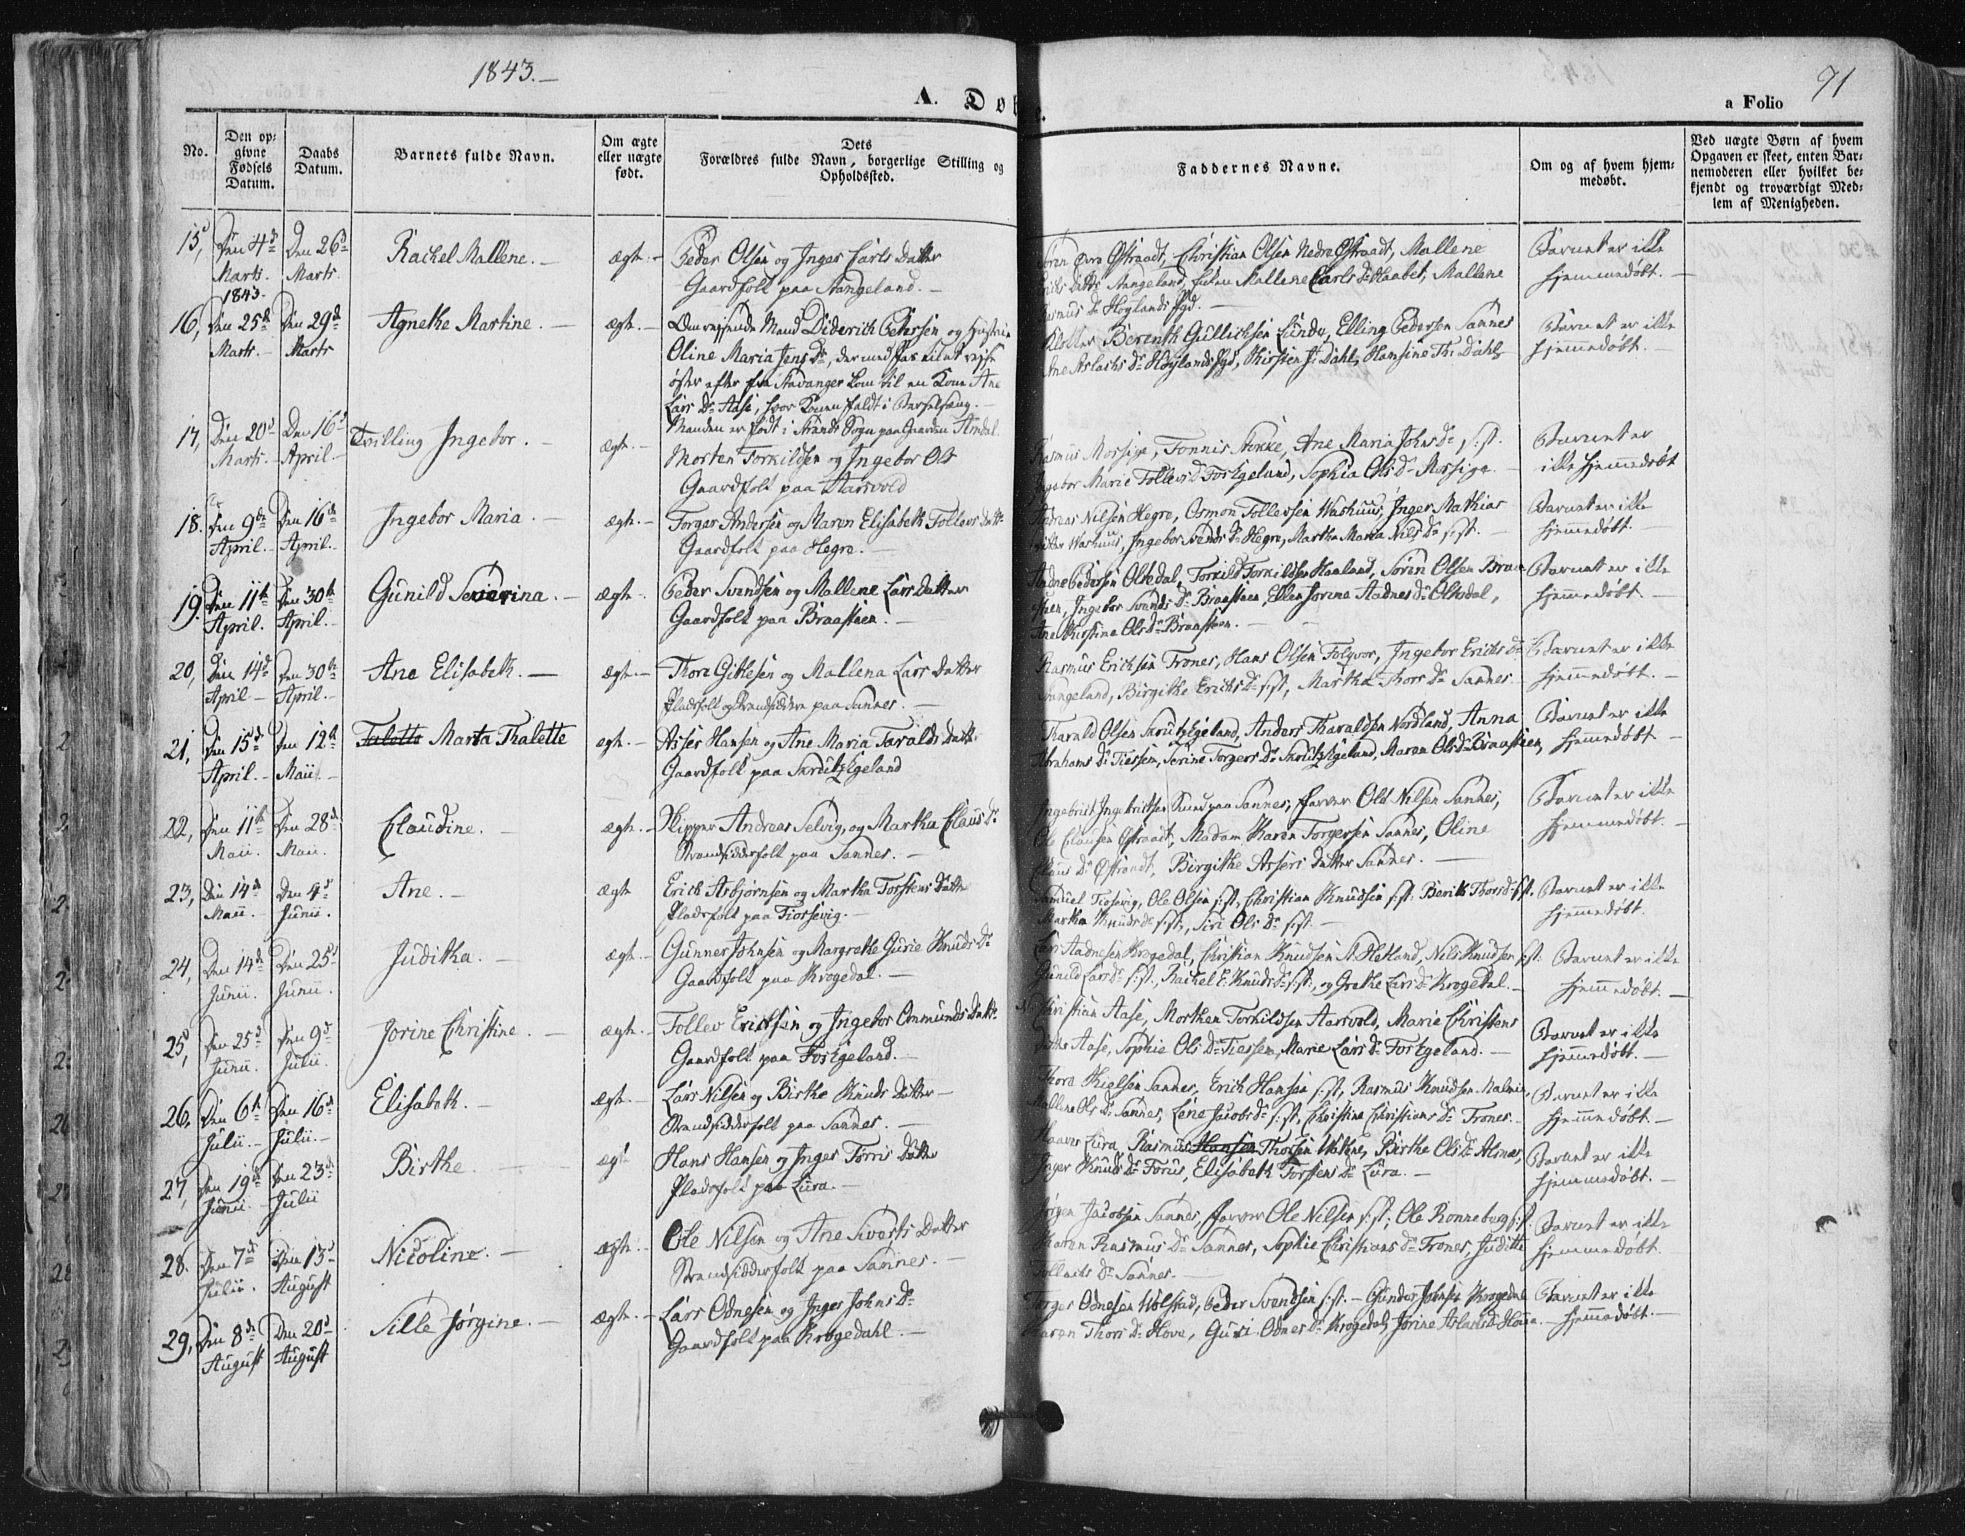 1843.—
91
A. Døbte.
a Folio
No.
Den op-
givne
Fødsels
Datum.
Daabs
Datum.
Barnets fulde Navn.
Om ægte
eller uægte
født.
Dets
Forældres fulde Navn, borgerlige Stilling og
Opholdssted.
Faddernes Navne.
Om og af hvem hjem-
medøbt.
Ved uægte Børn af hvem
Opgaven er skeet, enten Bar-
nemoderen eller hvilket be-
kjendt og troværdigt Med-
lem af Menigheden.
15, Den 4de Marts. 1843. Den 26de Marts. Rachel Mallene. — ægte. —
Peder Olsen og Inger Carls Datter
Gaardfolk paa Aangeland. —
Søren Øvre Østraadt, Christian Olsen Nedre Østraadt, Mallene
Aangeland, Mallene Carls Dr Haabet, Mallene
Rasmus Dr Høylands Pgd. —
Barnet er ikke
hjemmedøbt. —
16, Den 25de Marts. — Den 29de Marts Agnethe Martine. — ægte. —
Omreisende Mand Diderich Pedersen og Hustrue
Oline Maria Jens Dr,
øster efter fra Stavanger kom til en Kone Ane
Lars Dr Aase, hvor Konen faldt i Barselseng. —
Manden er født i Strands Sogn paa Gaarden
Berenth Gullichsen Lunde, Elling Pedersen Sannes
Ane Aslachs Dr Høylands Pgd, Kirsten J. Dahl, Hansine Th. Dahl,
Barnet er ikke
hjemmedøbt. —
17, Den 20de Marts. Den 16de April. — Tvilling Ingebor. — ægte. —
Morten Torkildsen og Ingebor Ols
Gaardfolk paa Aarsvold
Rasmus Mossige, Tønnis Stokke, Ane Maria Johns Dr s:st.
Ingebor Marie Tollevs Dr Foss Egeland, Sophia Ols Dr Mossige.
Barnet er
ikke hjemmedøbt
18. Den 9de April. — Den 16de April. — Ingebor Maria. — ægte. —
Torger Andersen og Maren Elisabeth Tollevs Datter
Gaardfolk paa Hegre. —
Andreas Nilsen Hegre, Osmon Tollevsen Washuus, Inger Mathias
Datter Washuus, Ingebor Svends Dr Hegre, Martha Maria Nils Dr s:st. —
Barnet er ikke
hjemmedøbt —
19. Den 11te April. Den 30te April. — Gunild Severina. — ægte. —
Peder Svendsen og Mallene Lars Datter
Gaardfolk paa Braasteen. —
Andne Pedersen Oltedal, Torkild Torkildsen Haaland, Søren Olsen Braa-
steen, Ingebor Svends Dr Braasteen, Ellen Serina Aadnes Dr Oltedal,
Ane Kirstine Ols Dr Braasteen. —
Barnet er ikke
hjemmedøbt. —
20, Den 14de April — Den 30te April. — Ane Elisabeth. — ægte. —
Thore Gitlesen og Mallena Lars Datter
Pladsfolk og Strandsiddere paa Sannes. —
Rasmus Erichsen Trones, Hans Olsen Folqvor, Ingebor Erichs Dr
Aangeland, Birgithe Erichs Dr s:st, Martha Thors Dr Sannes. —
Barnet er ikke
hjemmedøbt. —
21, Den 15de April. — Den 12te Maii. — Taletto Marta Thalette ægte. —
Asser Hansen og Ane Maria Taralds Datter
Gaardfolk paa Skrutz Egeland
Tharald Olsen Skrutz Egeland, Anders Tharaldsen Nordland, Anna
Abrahams Dr Tiessem, Serine Torgers Dr Skrutz Egeland, Maren Ols Dr Braasteen,
Barnet er ikke
hjemmedøbt. —
22, Den 11te Maii. Den 28de Maii. Claudine. — ægte. —
Skipper Andreas Selvig, og Martha Claus Dr
Strandsidderfolk paa Sannes. —
Ingebrict Ingebrictsen Smed paa Sannes, Farver Old Nilsen Sannes,
Ole Clausen Østraadt, Madam Karen Torgersen Sannes, Oline
Claus Dr Østraadt, Birgithe Assers Datter Sannes. —
Barnet er ikke
hjemmedøbt. —
23, Den 14de Maii. Den 4de Junii. Ane. — ægte
Erich Asbjørnsen og Martha Torstens Datter
Pladsfolk paa Tiorsevig. —
Samuel Tiorsevig, Ole Olsen s:st, Christian Knudsen s:st. Berith Thors Dr s:st.
Martha Knuds Dr s:st, Siri Ols Dr s:st. —
Barnet er ikke
hjemmedøbt.
24, Den 14de Junii. Den 25de Junii. Juditha. — ægte. —
Gunner Johnsen og Margrethe Gurie Knuds Dr
Gaardfolk paa Krogedal. —
Lars Aadnesen Krogedal, Christian Knudsen N. Hetland, Nils Knudsen s:st.
Gunild Lars Dr s:st., Rachel E. Knuds Dr s:st., og Grethe Lars Dr Krogedal. —
Barnet er ikke
hjemmedøbt. —
25, Den 25de Junii. Den 9de Julii. Jorine Christine. — ægte. —
Tollev Erichsen og Ingebor Omunds Datter
Gaardfolk paa Foss Egeland. —
Christian Aase, Morthen Torkildsen Aarsvold, Marie Christens
Datter Aase, Sophie Ols Dr Tiessem, Marie Lars Dr Foss Egeland. —
Barnet er ikke
hjemmedøbt. —
26. Den 6te Julii. — Den 16de Julii. — Elisabeth. — ægte. —
Lars Nilsen og Birthe Knuds Datter —
Strandsidderfolk paa Sannes. —
Thore Kielsen Sannes, Erich Hansen s:st, Rasmus Knudsen Malmin,
Mallene Ols Dr Sannes, Lene Jacobs Dr s:st, Christine Christians Dr Trones. —
Barnet er ikke
hjemmedøbt. —
27, Den 19de Junii. — Den 23de Julii Birthe. — ægte
Hans Hansen og Inger Torris Datter
Pladsfolk paa Lura. —
Haaver Lura, Rasmus Hansen Thorsen Watne, Birthe Ols Dr Alsnes,
Inger Knuds Dr Forus, Elisabeth Torstens Dr Lura. —
Barnet er ikke
hjemmedøbt. —
28. Den 7de Julii. Den 13de August Nicoline. — ægte. —
Ole Nilsen og Ane Siverts Datter
Strandsidderfolk paa Sannes. —
Jørgen Jacobsen Sannes, Farver Ole Nilsen s:st, Ole Ronneburg s:st.
Karen Rasmus Dr Sannes, Sophie Christians Dr Trones, Juditte
Tollachs Dr Sannes. —
Barnet er ikke
hjemmedøbt.
29, Den 8de August Den 20de August Sille Jørgine. — ægte. —
Lars Odnesen og Inger Johns Dr
Gaardfolk paa Krogedahl. —
Torger Odnesen Holstad, Peder Svendsen s:st. — Gunder Johnsen Krogedal
Karen Thors Dr Hove, Guri Odnes Dr Krogedal, Jorine Aslachs Dr Hove. —
Barnet er ikke
hjemmedøbt. —